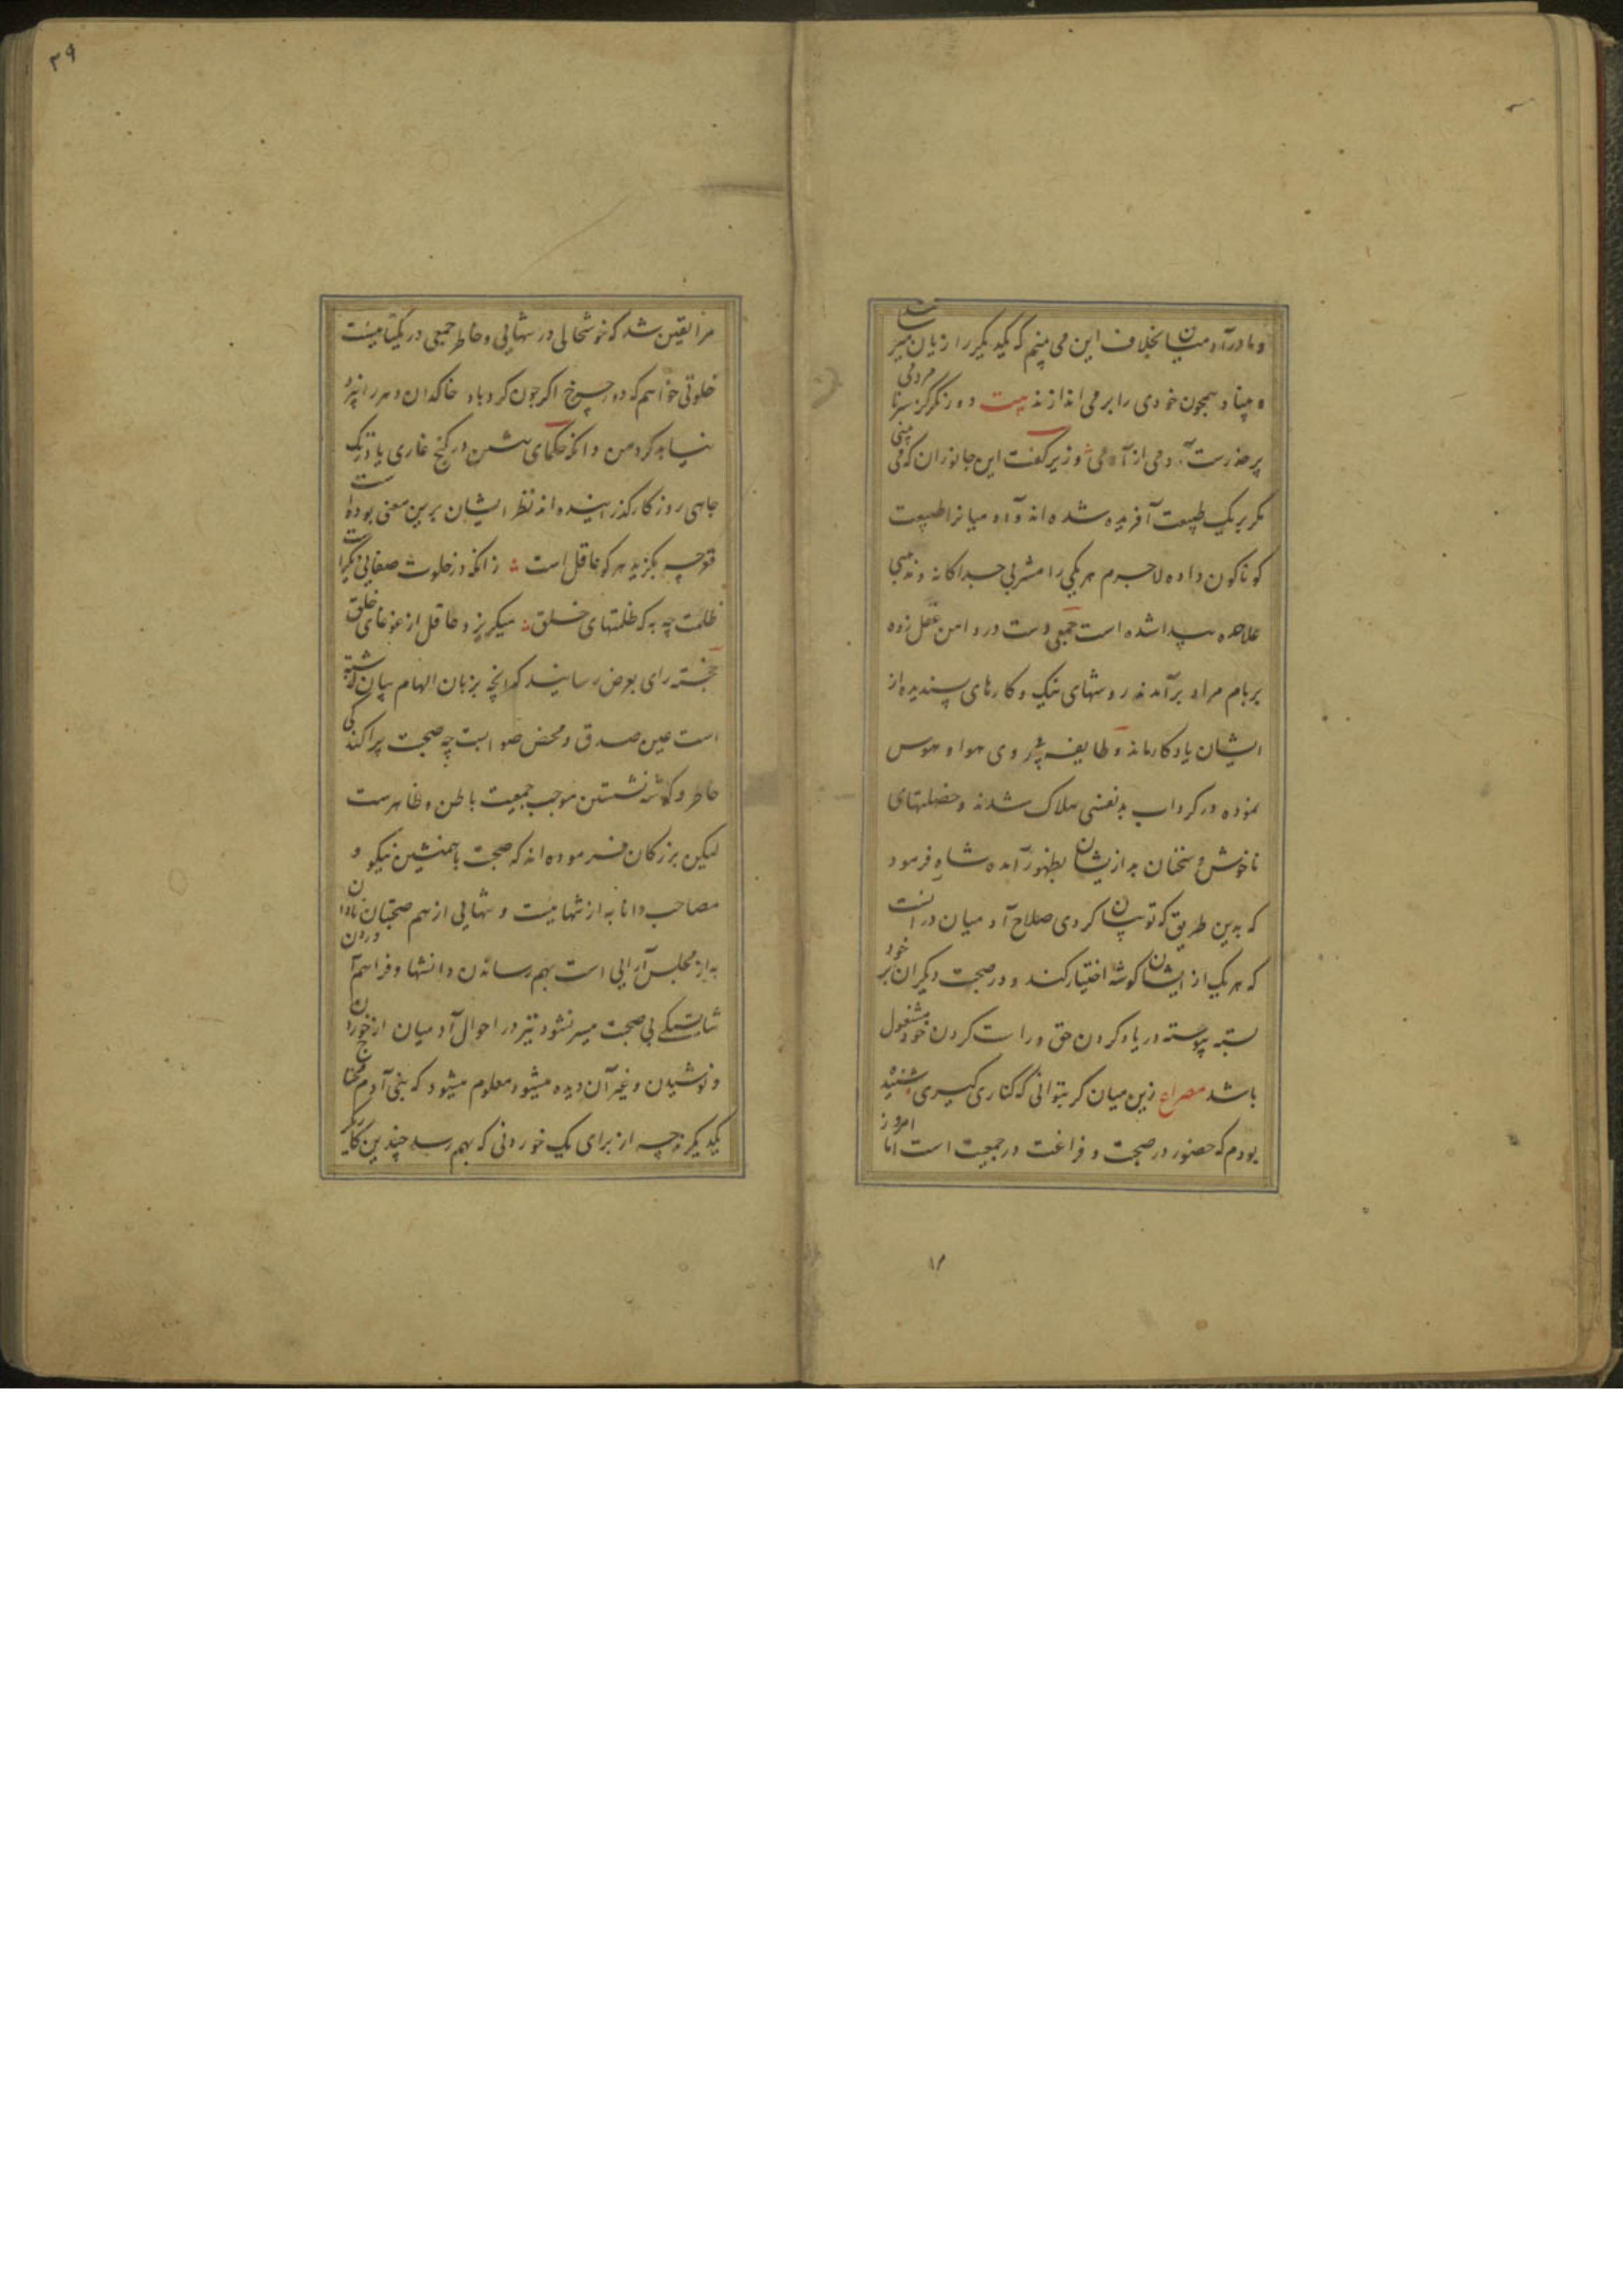 و ما در آدمیان بخلاف این می بینم که یکدیگر را زیان میرسانند
و بنیاد همچون خودی را بر می اندازند بیت دور نگر کز سر نامردمی
بر حذرست آدمی از آدمی وزیر گفت این جانوران که می بینی
مگر بر یک طبیعت آفریده شده اند و آدمیانرا طبیعت
کوناکون داده لاجرم هر یکی را مشربی جداکانه و مذهبی
علاحده پیدا شده است جمعی دست در دامن عقل زده
بر بام مراد برآمدند روشهای نیک و کارهای پسندیده از
ایشان یادکار ماند و طایفه پیروی هوا و هوس
نموده در کرداب بدنفسی هلاک شدند و خصلتهای
ناخوش و سخنان بد ازیشان بظهور آمده شاه فرمود
که بدین طریق که تو بیان کردی صلاح آدمیان در آنست
که هر یک از ایشان کوشه اختیار کند و در صحبت دیکران بر خود
بسته پیوسته در یاد کردن حق و راست کردن خود مشغول
باشد مصراع زین میان کر بتوانی که کناری کیری شنیده
بودم که حضور در صحبت و فراغت در جمعیت است اما امروز
۱۲
۲۹
مرا یقین شد که خوشحالی در تنهایی و خاطر جمعی در یکتاییست
خلوتی خواهم که دور چرخ اکر چون کردباد خاکدان دهر را بیزد
نیابد کرد من و آنکه حکمای پیشین در کنج غاری یا تاریک
جاهی روزکار کذرانیده اند نظر ایشان برین معنی بوده است
قعر چه بکزید هر کو عاقل است زانکه در خلوت صفاهای دلست
ظلمت چه به که ظلمتهای خلق میکریزد عاقل از غوغای خلق
خجسته رای بعرض رسانید که آنچه بزبان الهام بیان کذشته
است عین صدق و محض صوابست چه صحبت پراکندکی
خاطر و کوشه نشستن موجب جمعیت باطن و ظاهرست
لیکن بزرکان فرموده اند که صحبت با همنشین نیکو و
مصاحب دانا به از تنهاییست و تنهایی از هم صحبتان نادان
به از مجلس آرایی است بهم رساندن دانشها و فراهم آوردن
شایستکی بی صحبت میسر نشود نیز در احوال آدمیان از خوردن
و نوشیدن و غیر آن دیده میشود معلوم میشود که بنی آدم محتاج
یکدیکرند چه از برای یک خوردنی که بهم رسد چندین کاریکر